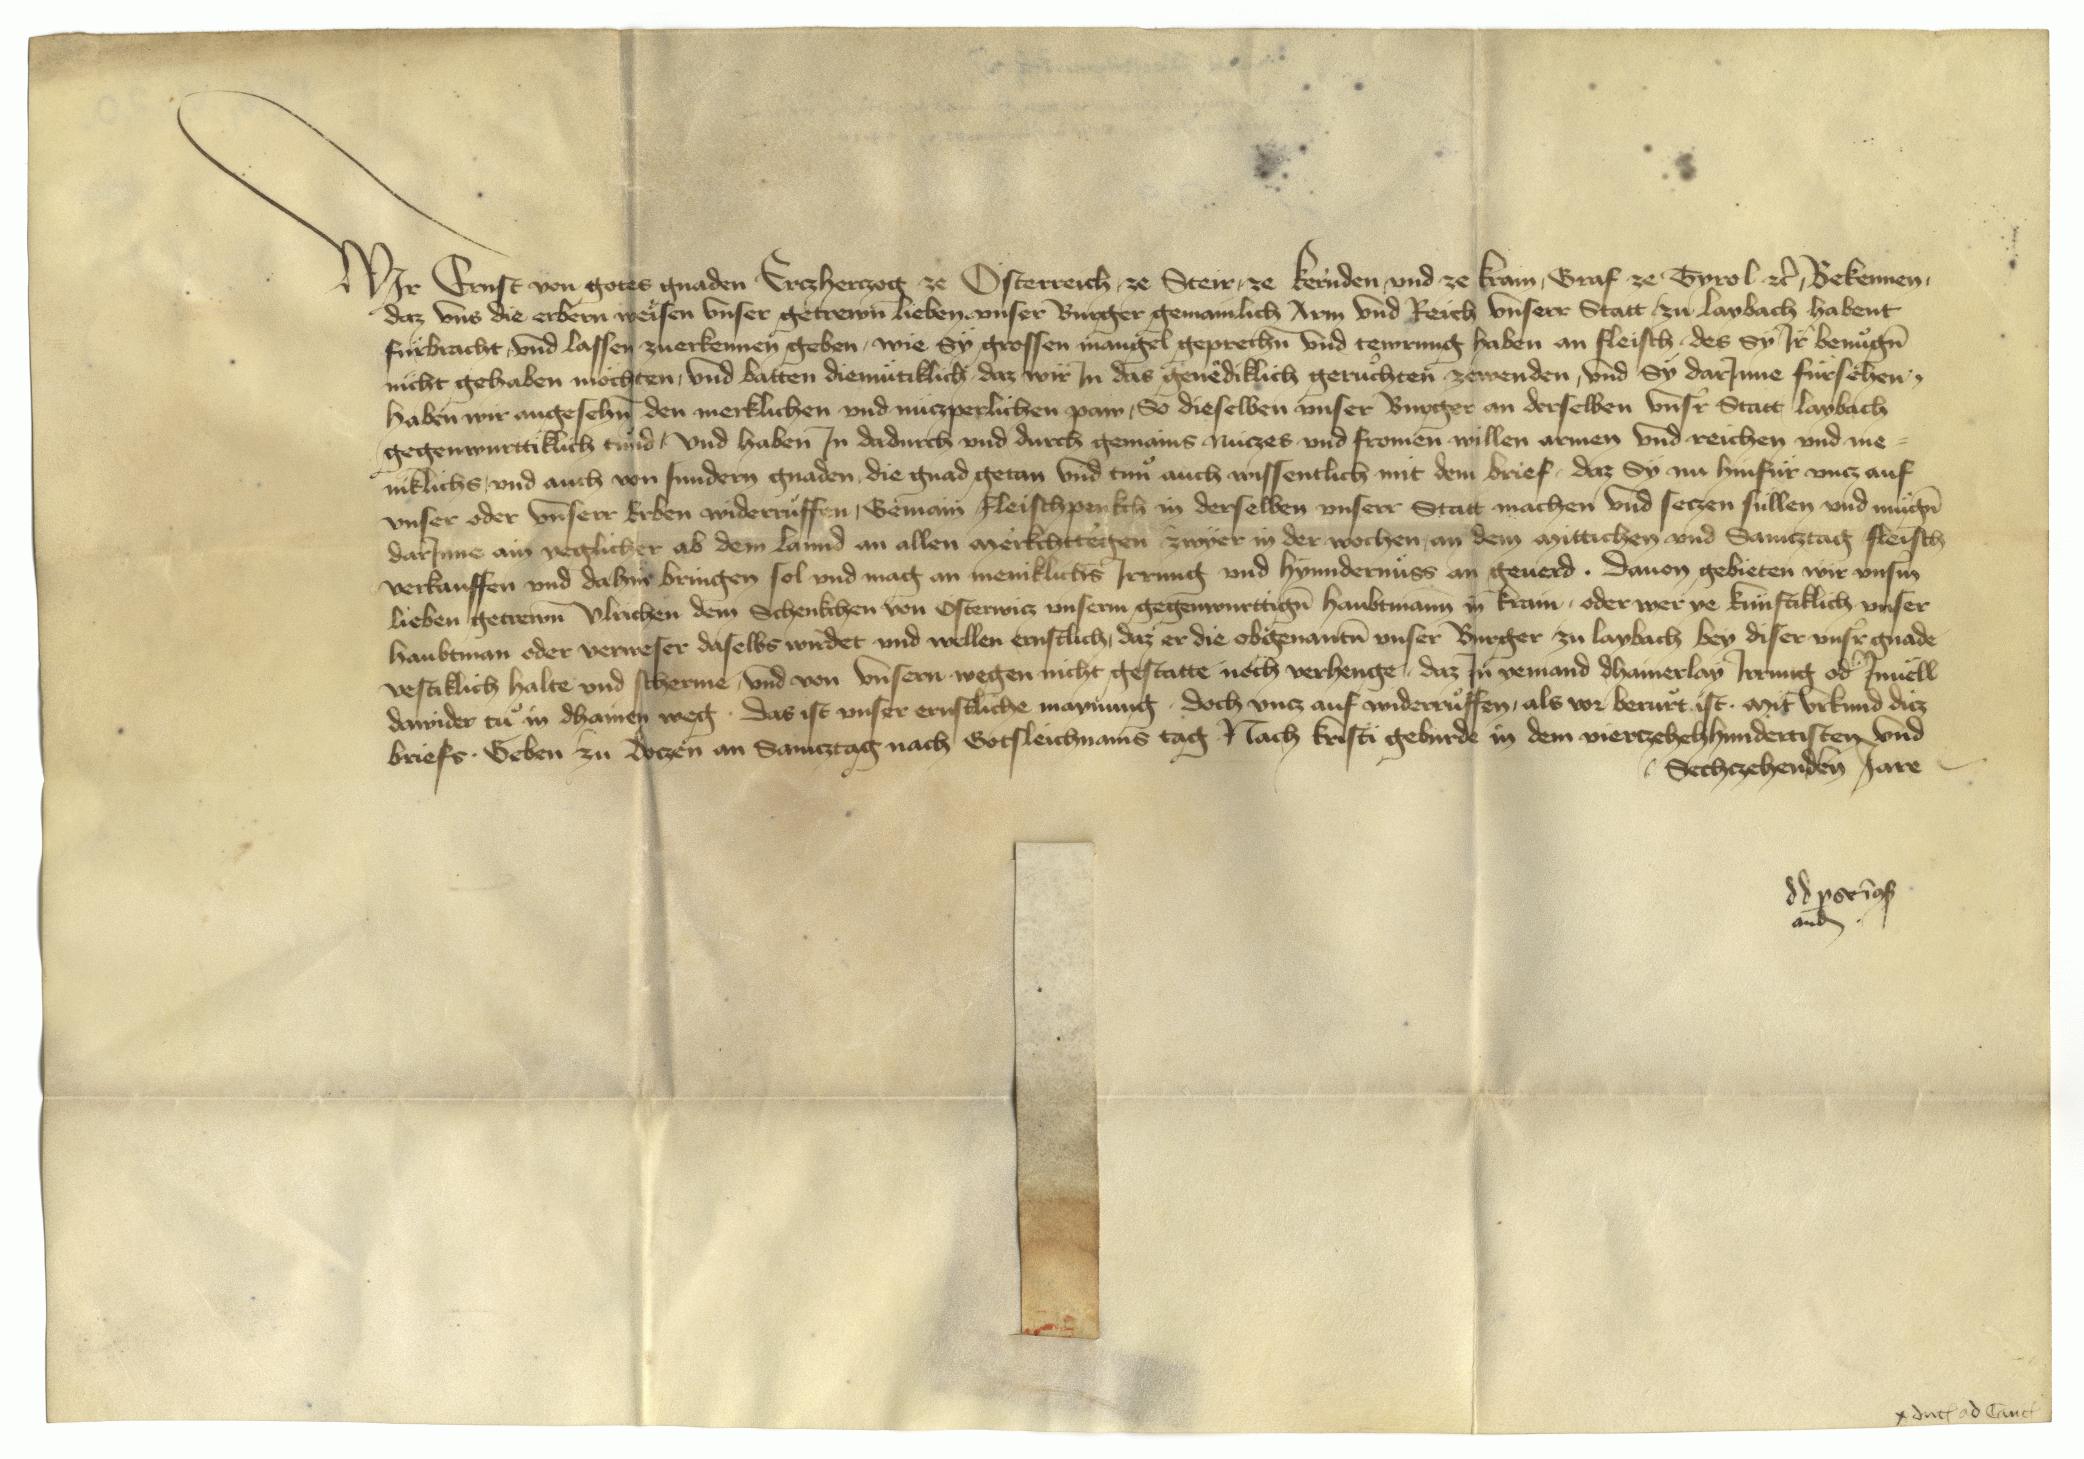 Wir Ernst von gotes gnaden Erczherczog ze Österreich, ze Steir, ze Kernden, vnd ze Krain, Graf ze Tyrol etc, Bekennen,
daz vns die erbern weisen vnser getrewn lieben vnser Burger gemainlich Arm vnd Reich vnserr Statt zu laybach habent
fürbracht, vnd lassen zuerkennen geben, wie Sÿ grossen mangel geprechn vnd tewrung haben an fleisch, des Sÿ Ir benügn
nicht gehaben möchten, vnd batten diemütiklich daz wir In das genêdiklich gerüchten zewenden, vnd Sÿ darInne fürsehen,
haben wir angesehn den merklichen vnd nüczperlichen paw, So dieselben vnser Burger an derselben vnsr Statt laybach
gegenwurttiklich tund, vnd haben In dadurch vnd durch gemains nuczes vnd fromen willen armen vnd reichen vnd me=
niklichs, vnd auch von sundern gnaden, die gnad getan vnd tun auch wissentlich mit dem brief, daz Sÿ nu hinfür vncz auf
vnser oder vnserr Erben widerrůffen, Gemain Fleischpenkch in derselben vnserr Statt machen vnd seczen sullen vnd mügn
darInne ain yeglicher ab dem lannd an allen Merkchttegen zwyer in der wochen, an dem Mittichen vnd Samcztag fleisch
verkauffen vnd dahin bringen sol vnd mag an meniklichs Irrung vnd hynndernüss an geuerd. Dauon gebieten wir vnsm
lieben getrewn Vlrichen dem Schenkchen von Osterwicz vnserm gegenwurttign haubtmann in Krain, oder wer ye künftiklich vnser
haubtman oder verweser daselbs wirdet vnd wellen ernstlich, daz er die obgenantn vnser Burger zu laybach bey diser vnsr gnade
vestiklich halte vnd scherme, vnd von vnsern wegen nicht gestatte noch verhenge, daz In yemand dhainerlay Irrung od Inuell
dawider tů in dhainen weg. Das ist vnser ernstliche maynung. Doch vncz auf widerrůffen, als vor berürt ist. Mit vrkund dicz
briefs. Geben zu Boczen an Samcztag nach Gotsleichnams tag Nach Kristi geburde in dem vierczehenhundertisten vnd
Sechczehenden Jare
dd p
aud
dux ad